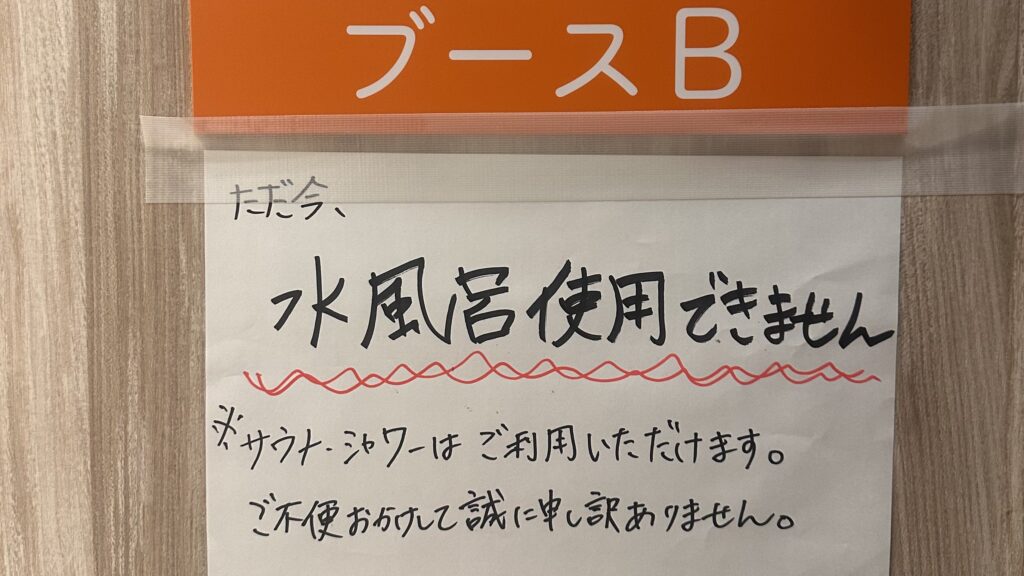 ブースB
ただ今、
水風呂使用できません
※サウナ・シャワーはご利用いただけます。
ご不便おかけして誠に申し訳ありません。